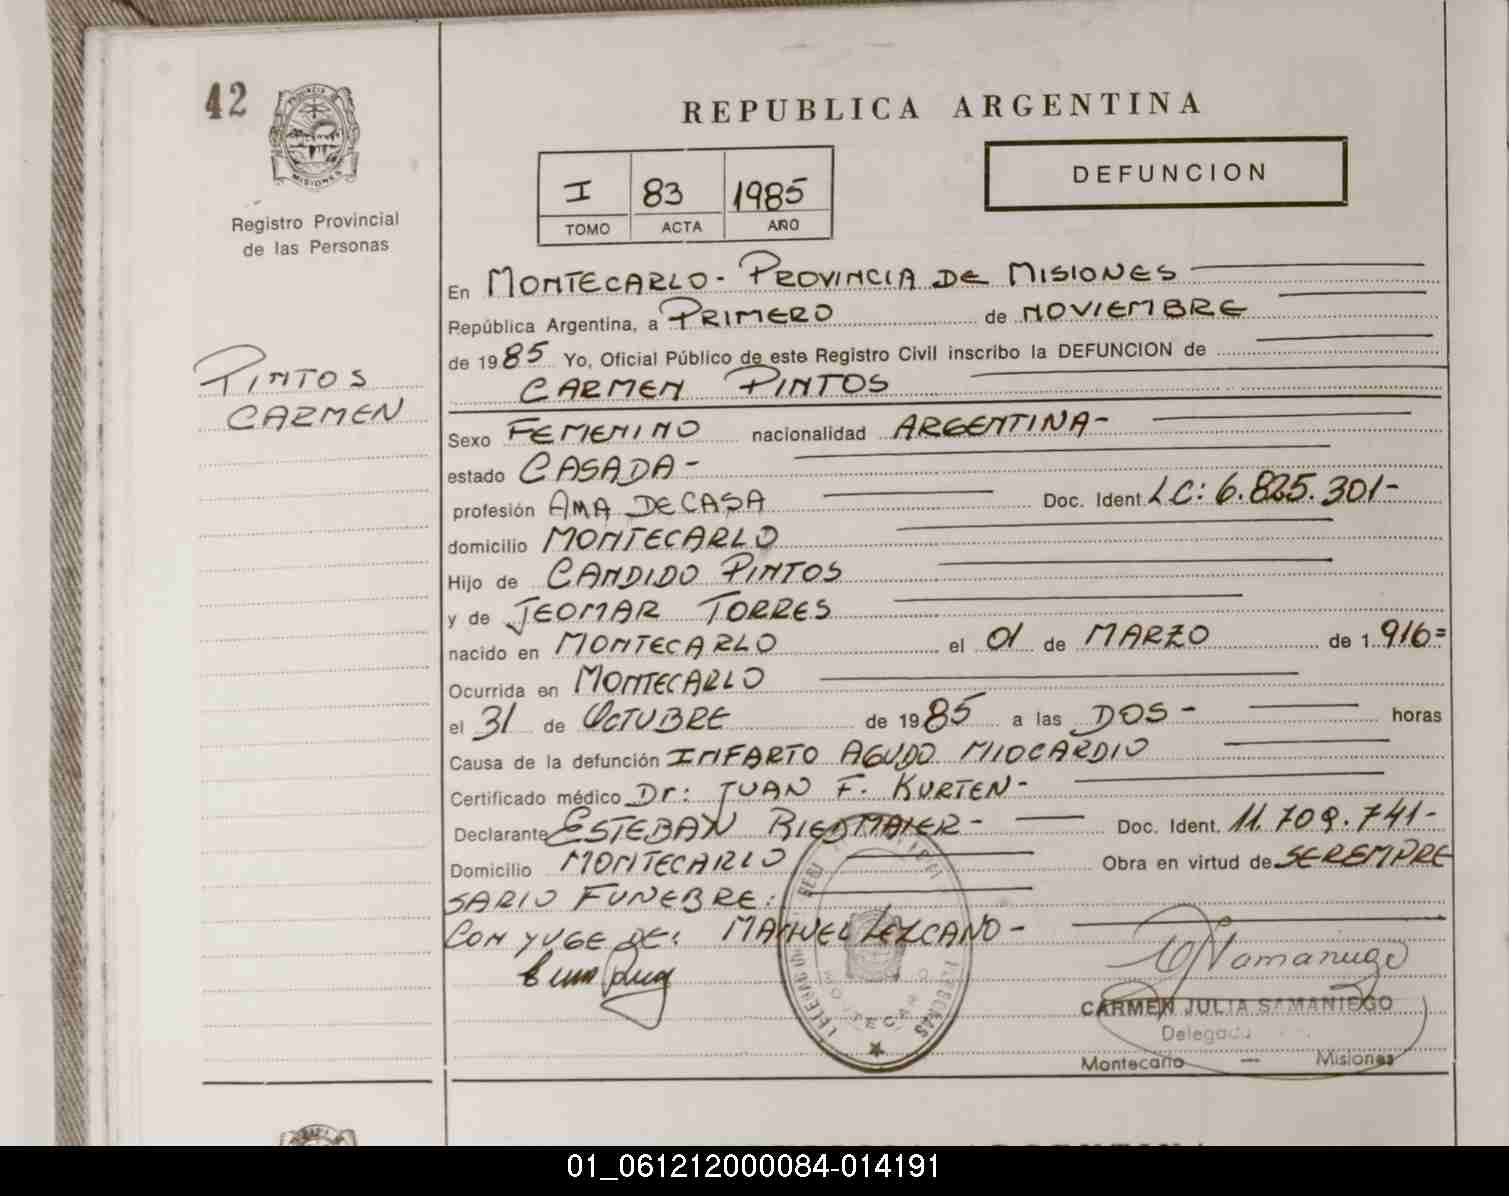 42
PROVINCIA DE
MISIONES
Registro Provincial
de las Personas
PINTOS
CARMEN
REPUBLICA ARGENTINA
I 83 1985
TOMO ACTA AÑO
DEFUNCION
En MONTECARLO - PROVINCIA DE MISIONES
República Argentina, a PRIMERO de NOVIEMBRE
de 1985 Yo, Oficial Público de este Registro Civil inscribo la DEFUNCION de
CARMEN PINTOS
Sexo FEMENINO nacionalidad ARGENTINA-
estado CASADA-
profesión AMA DE CASA Doc. Ident. LC: 6.825.301-
domicilio MONTECARLO
Hijo de CANDIDO PINTOS
y de JEOMAR TORRES
nacido en MONTECARLO el 01 de MARZO de 1.916=
Ocurrida en MONTECARLO
el 31 de OCTUBRE de 1985 a las DOS- horas
Causa de la defunción INFARTO AGUDO MIOCARDIO
Certificado médico Dr: JUAN F. KURTEN-
Declarante ESTEBAN RIEDMAIER- Doc. Ident. 11.709.741-
Domicilio MONTECARLO Obra en virtud de SER EMPRE
SARIO FUNEBRE:
CONYUGE DE: MANUEL LEZCANO-
MONTECARLO
PERSONAS
CARMEN JULIA SAMANIEGO
Delegada
Montecarlo — Misiones
01_061212000084-014191